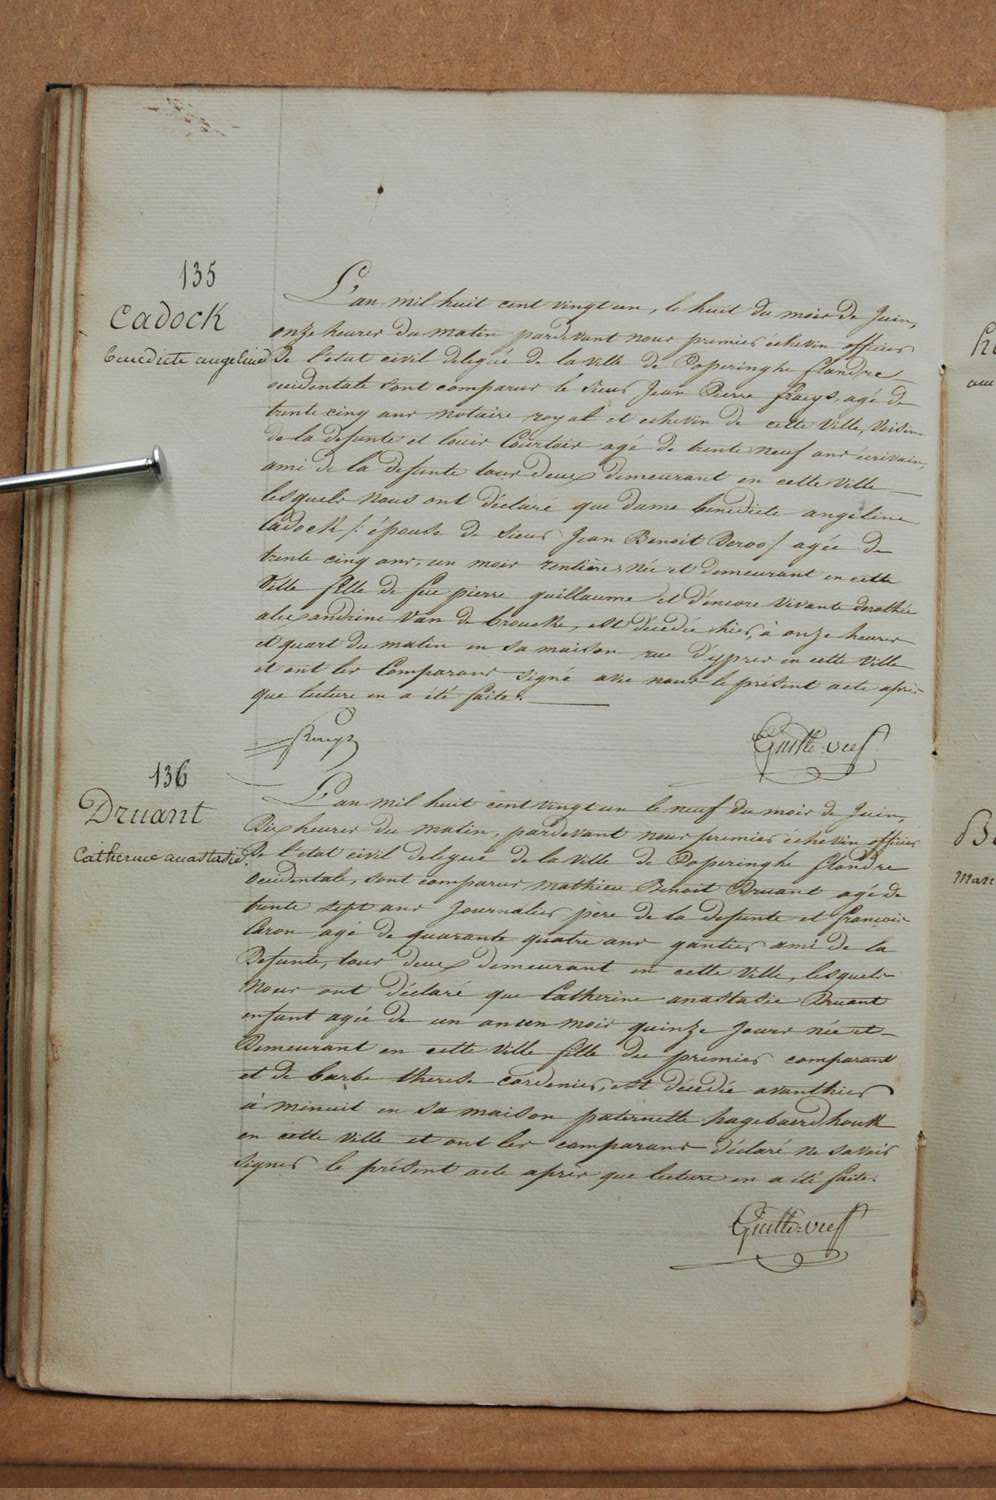 135
Cadock
benedicte angeline
L'an mil huit cent vingt un, le huit du mois de Juin,
onze heures du matin pardevant nous premier echevin officier
de l'etat civil delegué de la ville de Poperinghe flandre
occidentale sont comparus le sieur Jean Pierre fraeys, agé de
trente cinq ans notaire royal et echevin de cette ville, voisin
de la defunte et louis Courtois agé de trente neuf ans écrivain,
ami de la defunte tous deux demeurant en cette ville
lesquels nous ont déclaré que dame benedicte angeline
Cadock /: épouse de sieur Jean Benoit Beroo/ agée de
trente cinq ans, un mois rentière, née et demeurant en cette
ville fille de feu pierre guillaume et d'encore vivante dorothée
alexandrine Van de broucke, est décedée hier, à onze heures
et quart du matin en sa maison rue d'ypres en cette ville
et ont les comparans signé avec nous le présent acte après
que lecture en a été faite.
fraeys
136
Druant
Catherine anastasie.
L'an mil huit cent vingt un le neuf du mois de Juin,
Dix heures du matin, pardevant nous premier échevin officier
de l'etat civil delegué de la ville de Poperinghe flandre
occidentale, sont comparus mathieu Benoit Druant agé de
trente sept ans Journalier père de la defunte et françois
Caron agé de quarante quatre ans gantier ami de la
Defunte, tous deux demeurant en cette ville, lesquels
Nous ont déclaré que Catherine anastasie Druant
enfant agée de un an un mois quinze jours née et
Demeurant en cette ville fille du premier comparant
et de barbe therese cordenier, est décedée avanthier
à minuit en sa maison paternelle hagebaerdhouk
en cette ville et ont les comparans déclaré ne savoir
signer le présent acte après que lecture en a été faite.